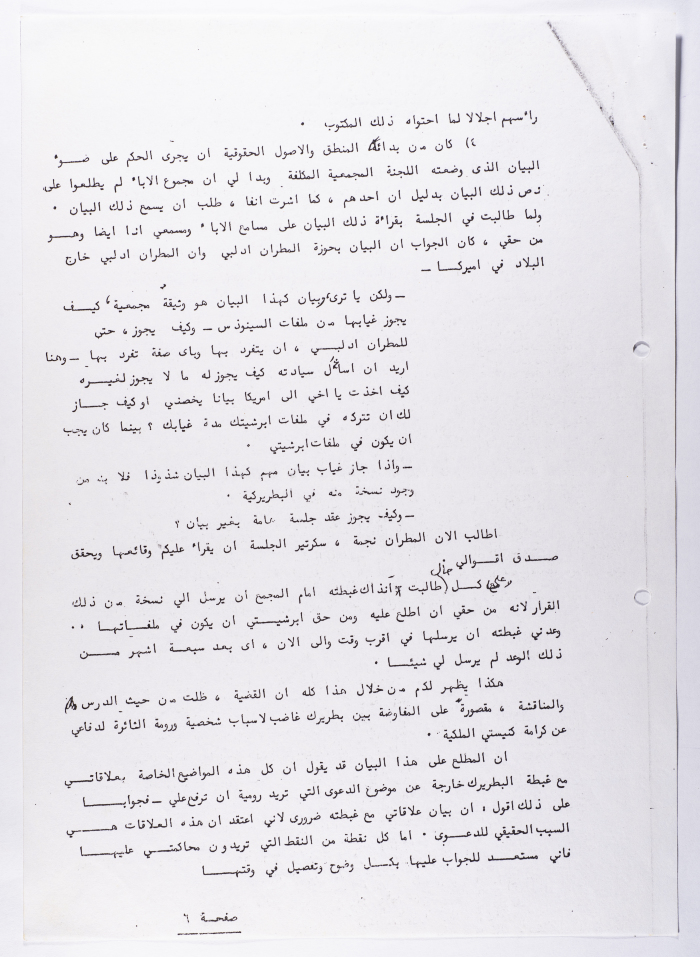 رأسهم اجلالا لما احتواه ذلك المكتوب .
٤) كان من بدائة المنطق والاصول الحقوقية ان يجرى الحكم على ضوء
البيان الذى وضعته اللجنة المجمعية المكلفة وبدا لي ان مجموع الاباء لم يطلعوا على
نص ذلك البيان بدليل ان احدهم ، كما اشرت انفا ، طلب ان يسمع ذلك البيان .
ولما طالبت في الجلسة بقراءة ذلك البيان على مسامع الاباء ومسمعي انا ايضا وهو
من حقي ، كان الجواب ان البيان بحوزة المطران ادلبي وان المطران ادلبي خارج
البلاد في اميركا ـ
ـ ولكن يا ترى وبيان كهذا البيان هو وثيقة مجمعية ، كيف
يجوز غيابها من ملفات السينوذس ـ وكيف يجوز ، حتى
للمطران ادلبي ، ان يتفرد بها وباى صفة تفرد بها ـ وهنا
اريد ان اسائل سيادته كيف يجوز له ما لا يجوز لغيره
كيف اخذت يا اخي الى امريكا بيانا يخصني او كيف جاز
لك ان تتركه في ملفات ابرشيتك مدة غيابك ؟ بينما كان يجب
ان يكون في ملفات ابرشيتي .
ـ واذا جاز غياب بيان مهم كهذا البيان شذوذا فلا بد من
وجود نسخة منه في البطريركية .
ـ وكيف يجوز عقد جلسة عامة بغير بيان ؟
اطالب الان المطران نجمة ، سكرتير الجلسة ان يقرأ عليكم وقائعها ويحقق
صدق اقوالي
وعلى كل حال طالبت آنذاك غبطته امام المجمع ان يرسل الي نسخة من ذلك
القرار لانه من حقي ان اطلع عليه ومن حق ابرشيتي ان يكون في ملفاتها ..
وعدني غبطته ان يرسلها في اقرب وقت والى الان ، اى بعد سبعة اشهر من
ذلك الوعد لم يرسل لي شيئا .
هكذا يظهر لكم من خلال هذا كله ان القضية ، ظلت من حيث الدرس
والمناقشة ، مقصورة على المفاوضة بين بطريرك غاضب لاسباب شخصية ورومة الثائرة لدفاعي
عن كرامة كنيستي الملكية .
ان المطلع على هذا البيان قد يقول ان كل هذه المواضيع الخاصة بعلاقاتي
مع غبطة البطريرك خارجة عن موضوع الدعوى التي تريد رومية ان ترفع علي ـ فجوابا
على ذلك اقول : ان بيان علاقاتي مع غبطته ضرورى لاني اعتقد ان هذه العلاقات هي
السبب الحقيقي للدعوى . اما كل نقطة من النقط التي تريدون محاكمتي عليها
فاني مستعد للجواب عليها بكل وضوح وتفصيل في وقتها
صفحة ٦